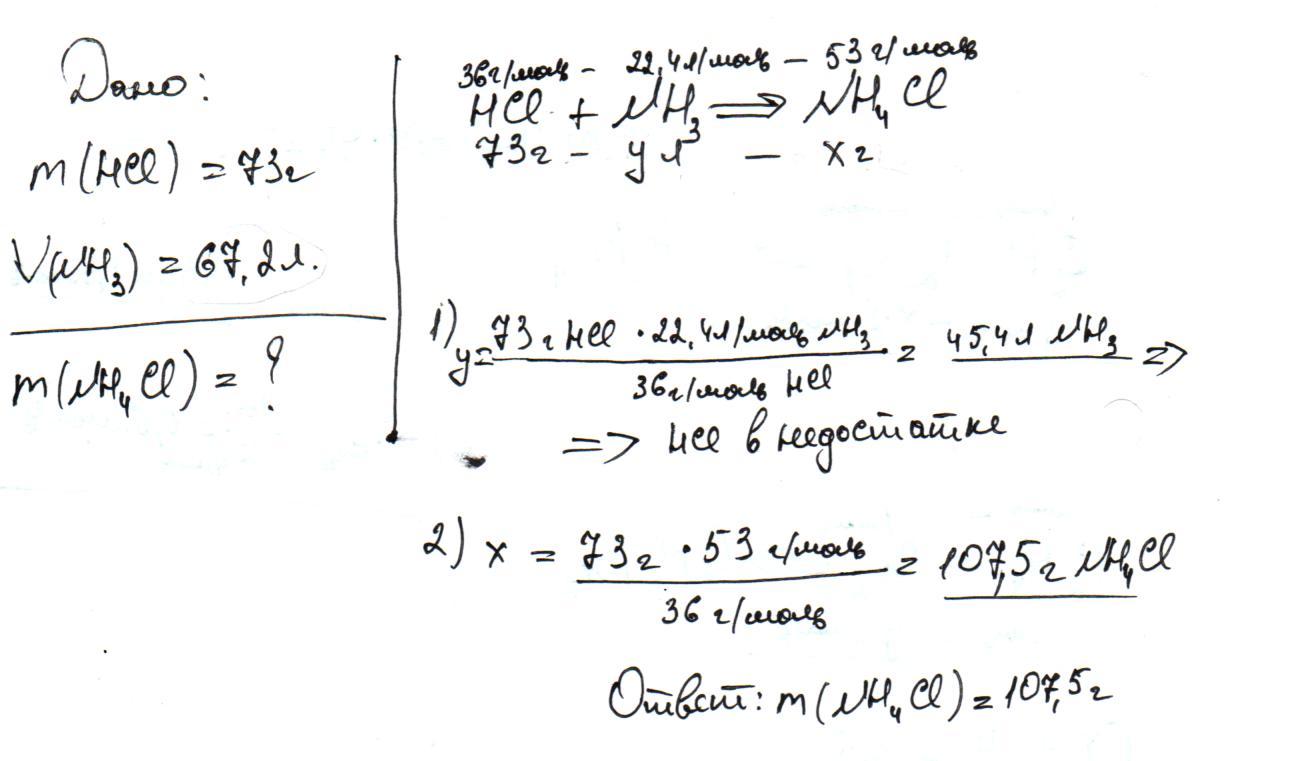 Дано:
m(HCl) = 73г
V(NH₃) = 67,2л.
m(NH₄Cl) = ?
36г/моль - 22,4л/моль - 53г/моль
HCl + NH₃ ⟹ NH₄Cl
73г - y л - x г
1) y = 73 г HCl · 22,4л/моль NH₃ / 36г/моль HCl = 45,4л NH₃ =>
=> HCl в недостатке
2) x = 73г · 53 г/моль / 36 г/моль = 107,5г NH₄Cl
Ответ: m(NH₄Cl) = 107,5г